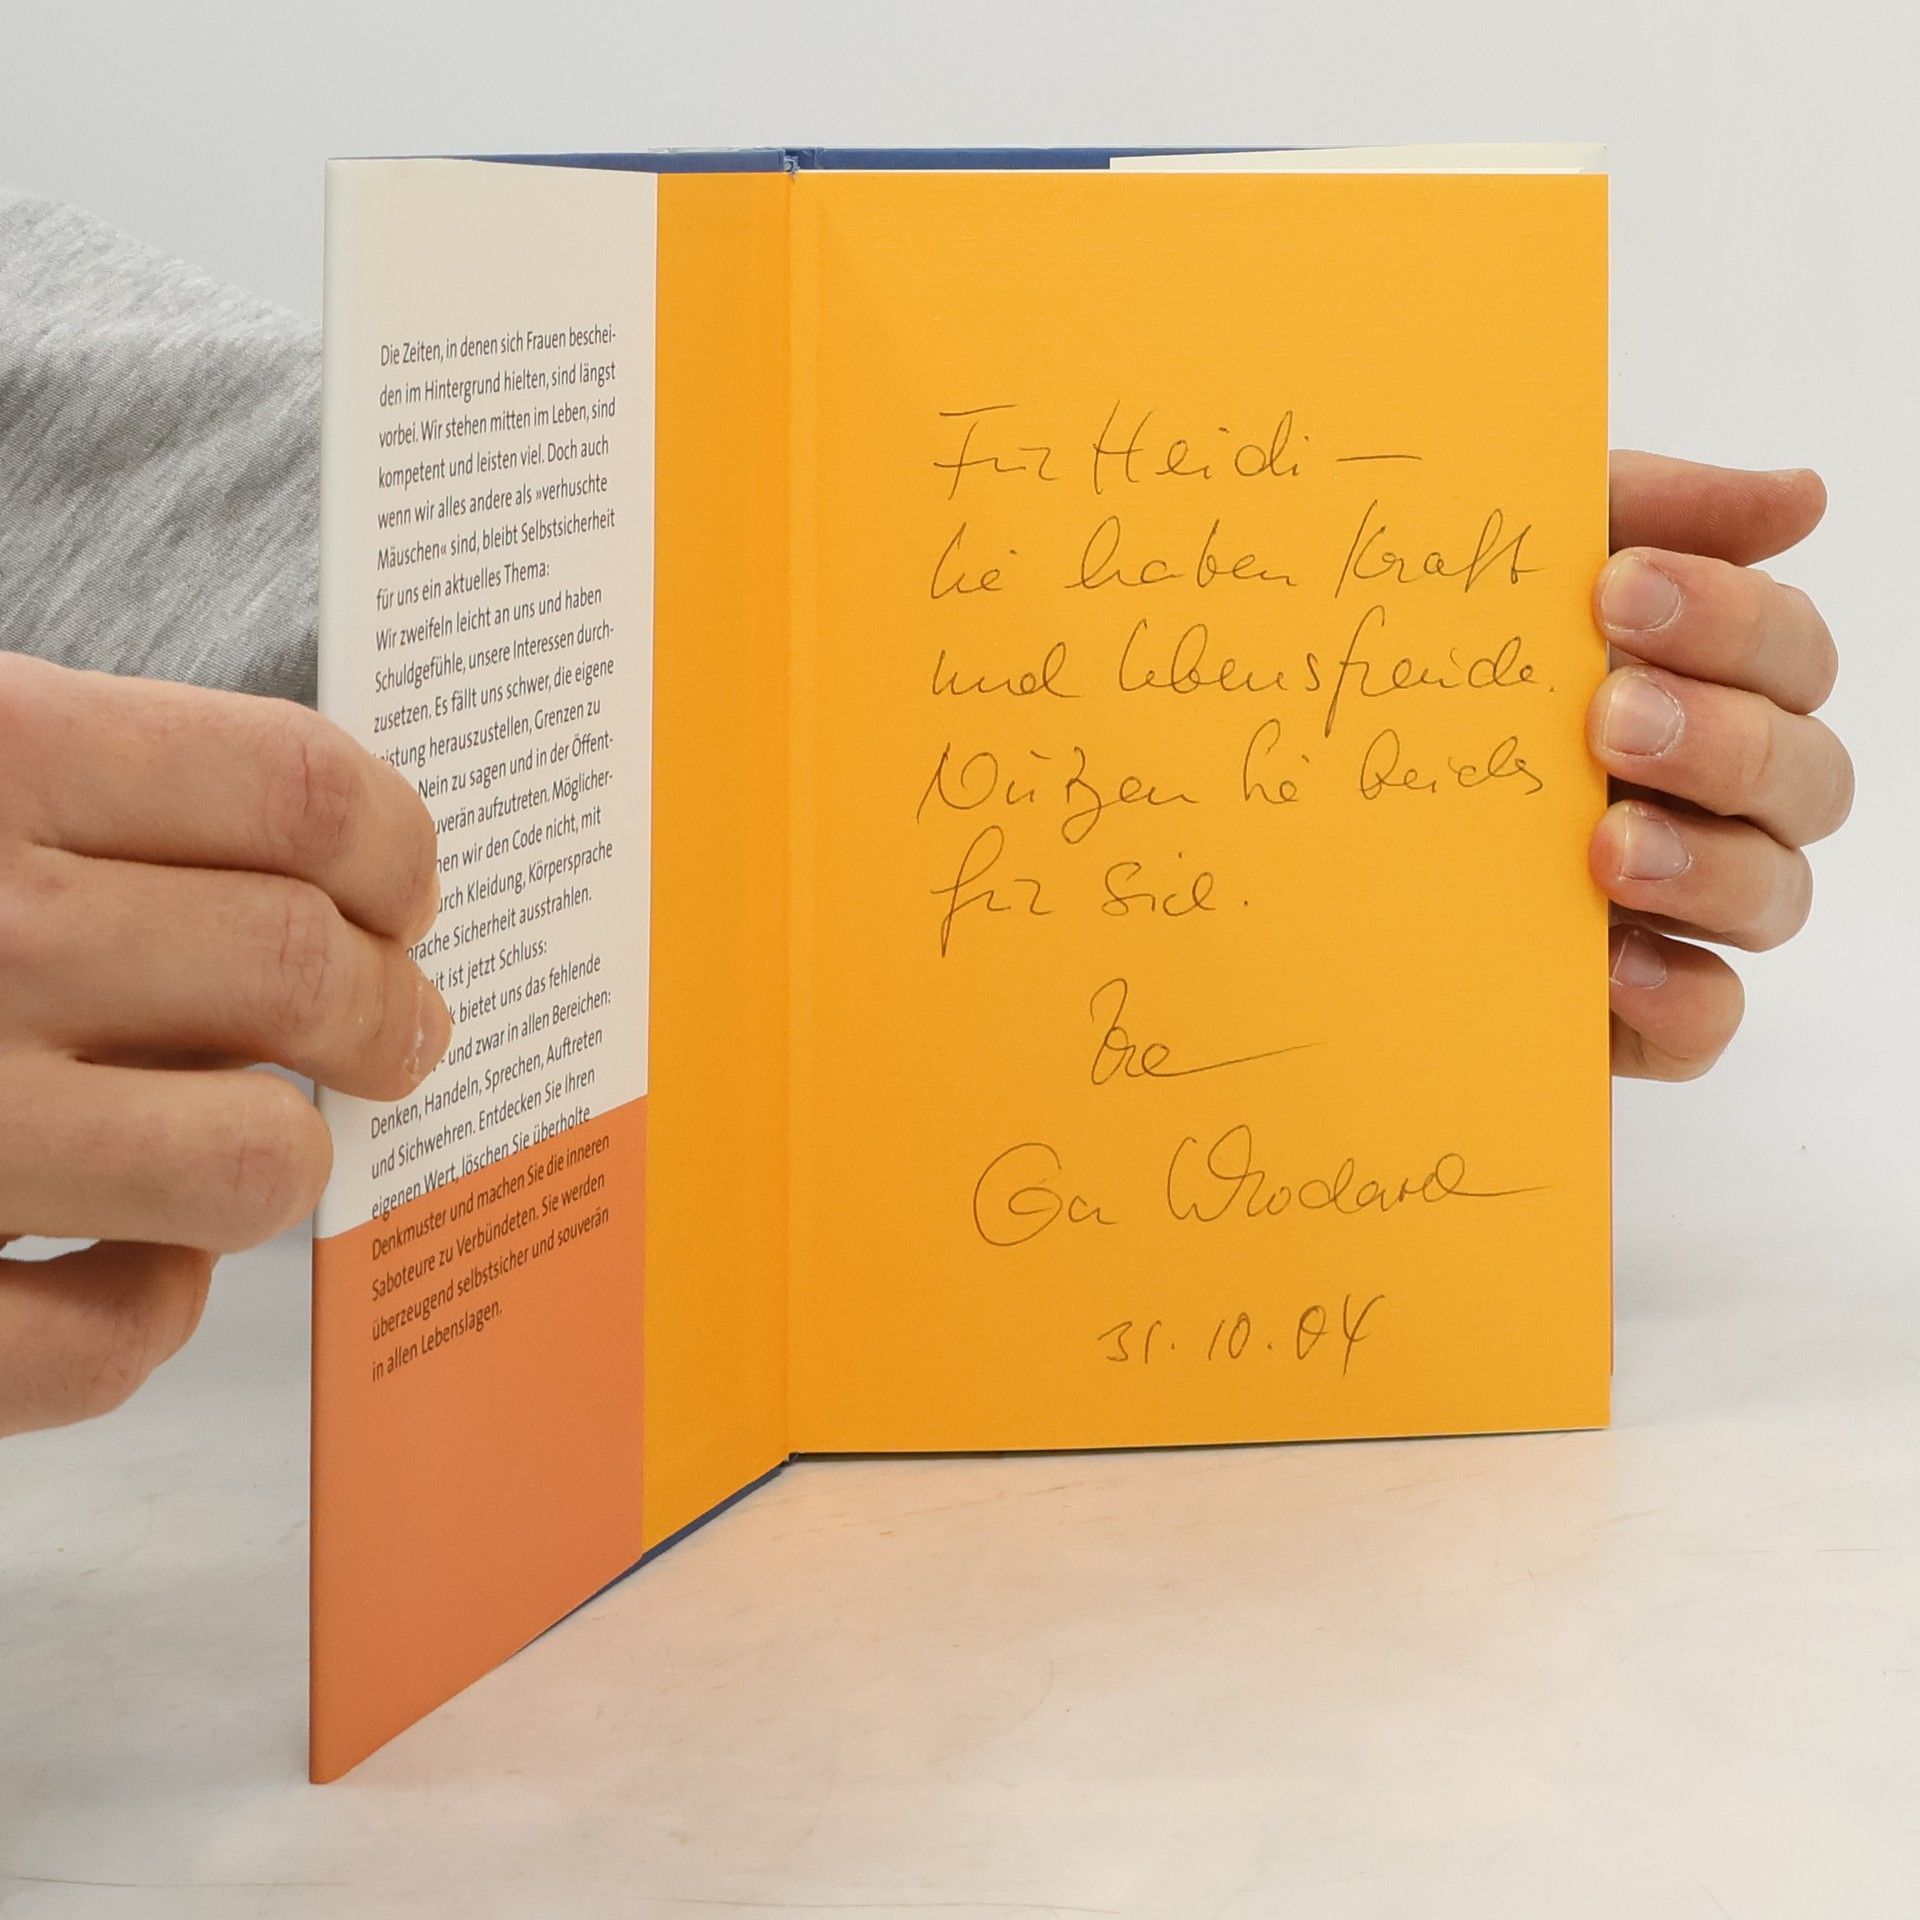 Die Zeiten, in denen sich Frauen beschei-
den im Hintergrund hielten, sind längst
vorbei. Wir stehen mitten im Leben, sind
kompetent und leisten viel. Doch auch
wenn wir alles andere als »verhuschte
Mäuschen« sind, bleibt Selbstsicherheit
für uns ein aktuelles Thema:
Wir zweifeln leicht an uns und haben
Schuldgefühle, unsere Interessen durch-
zusetzen. Es fällt uns schwer, die eigene
istung herauszustellen, Grenzen zu
Nein zu sagen und in der Öffent-
uverän aufzutreten. Möglicher-
nen wir den Code nicht, mit
urch Kleidung, Körpersprache
prache Sicherheit ausstrahlen.
it ist jetzt Schluss:
k bietet uns das fehlende
- und zwar in allen Bereichen:
Denken, Handeln, Sprechen, Auftreten
und Sichwehren. Entdecken Sie Ihren
eigenen Wert, löschen Sie überholte
Denkmuster und machen Sie die inneren
Saboteure zu Verbündeten. Sie werden
überzeugend selbstsicher und souverän
in allen Lebenslagen.
Für Heidi —
Sie haben Kraft
und Lebensfreude.
Nützen Sie beides
für sich.
Ihre
Eva Wlodarek
31.10.04